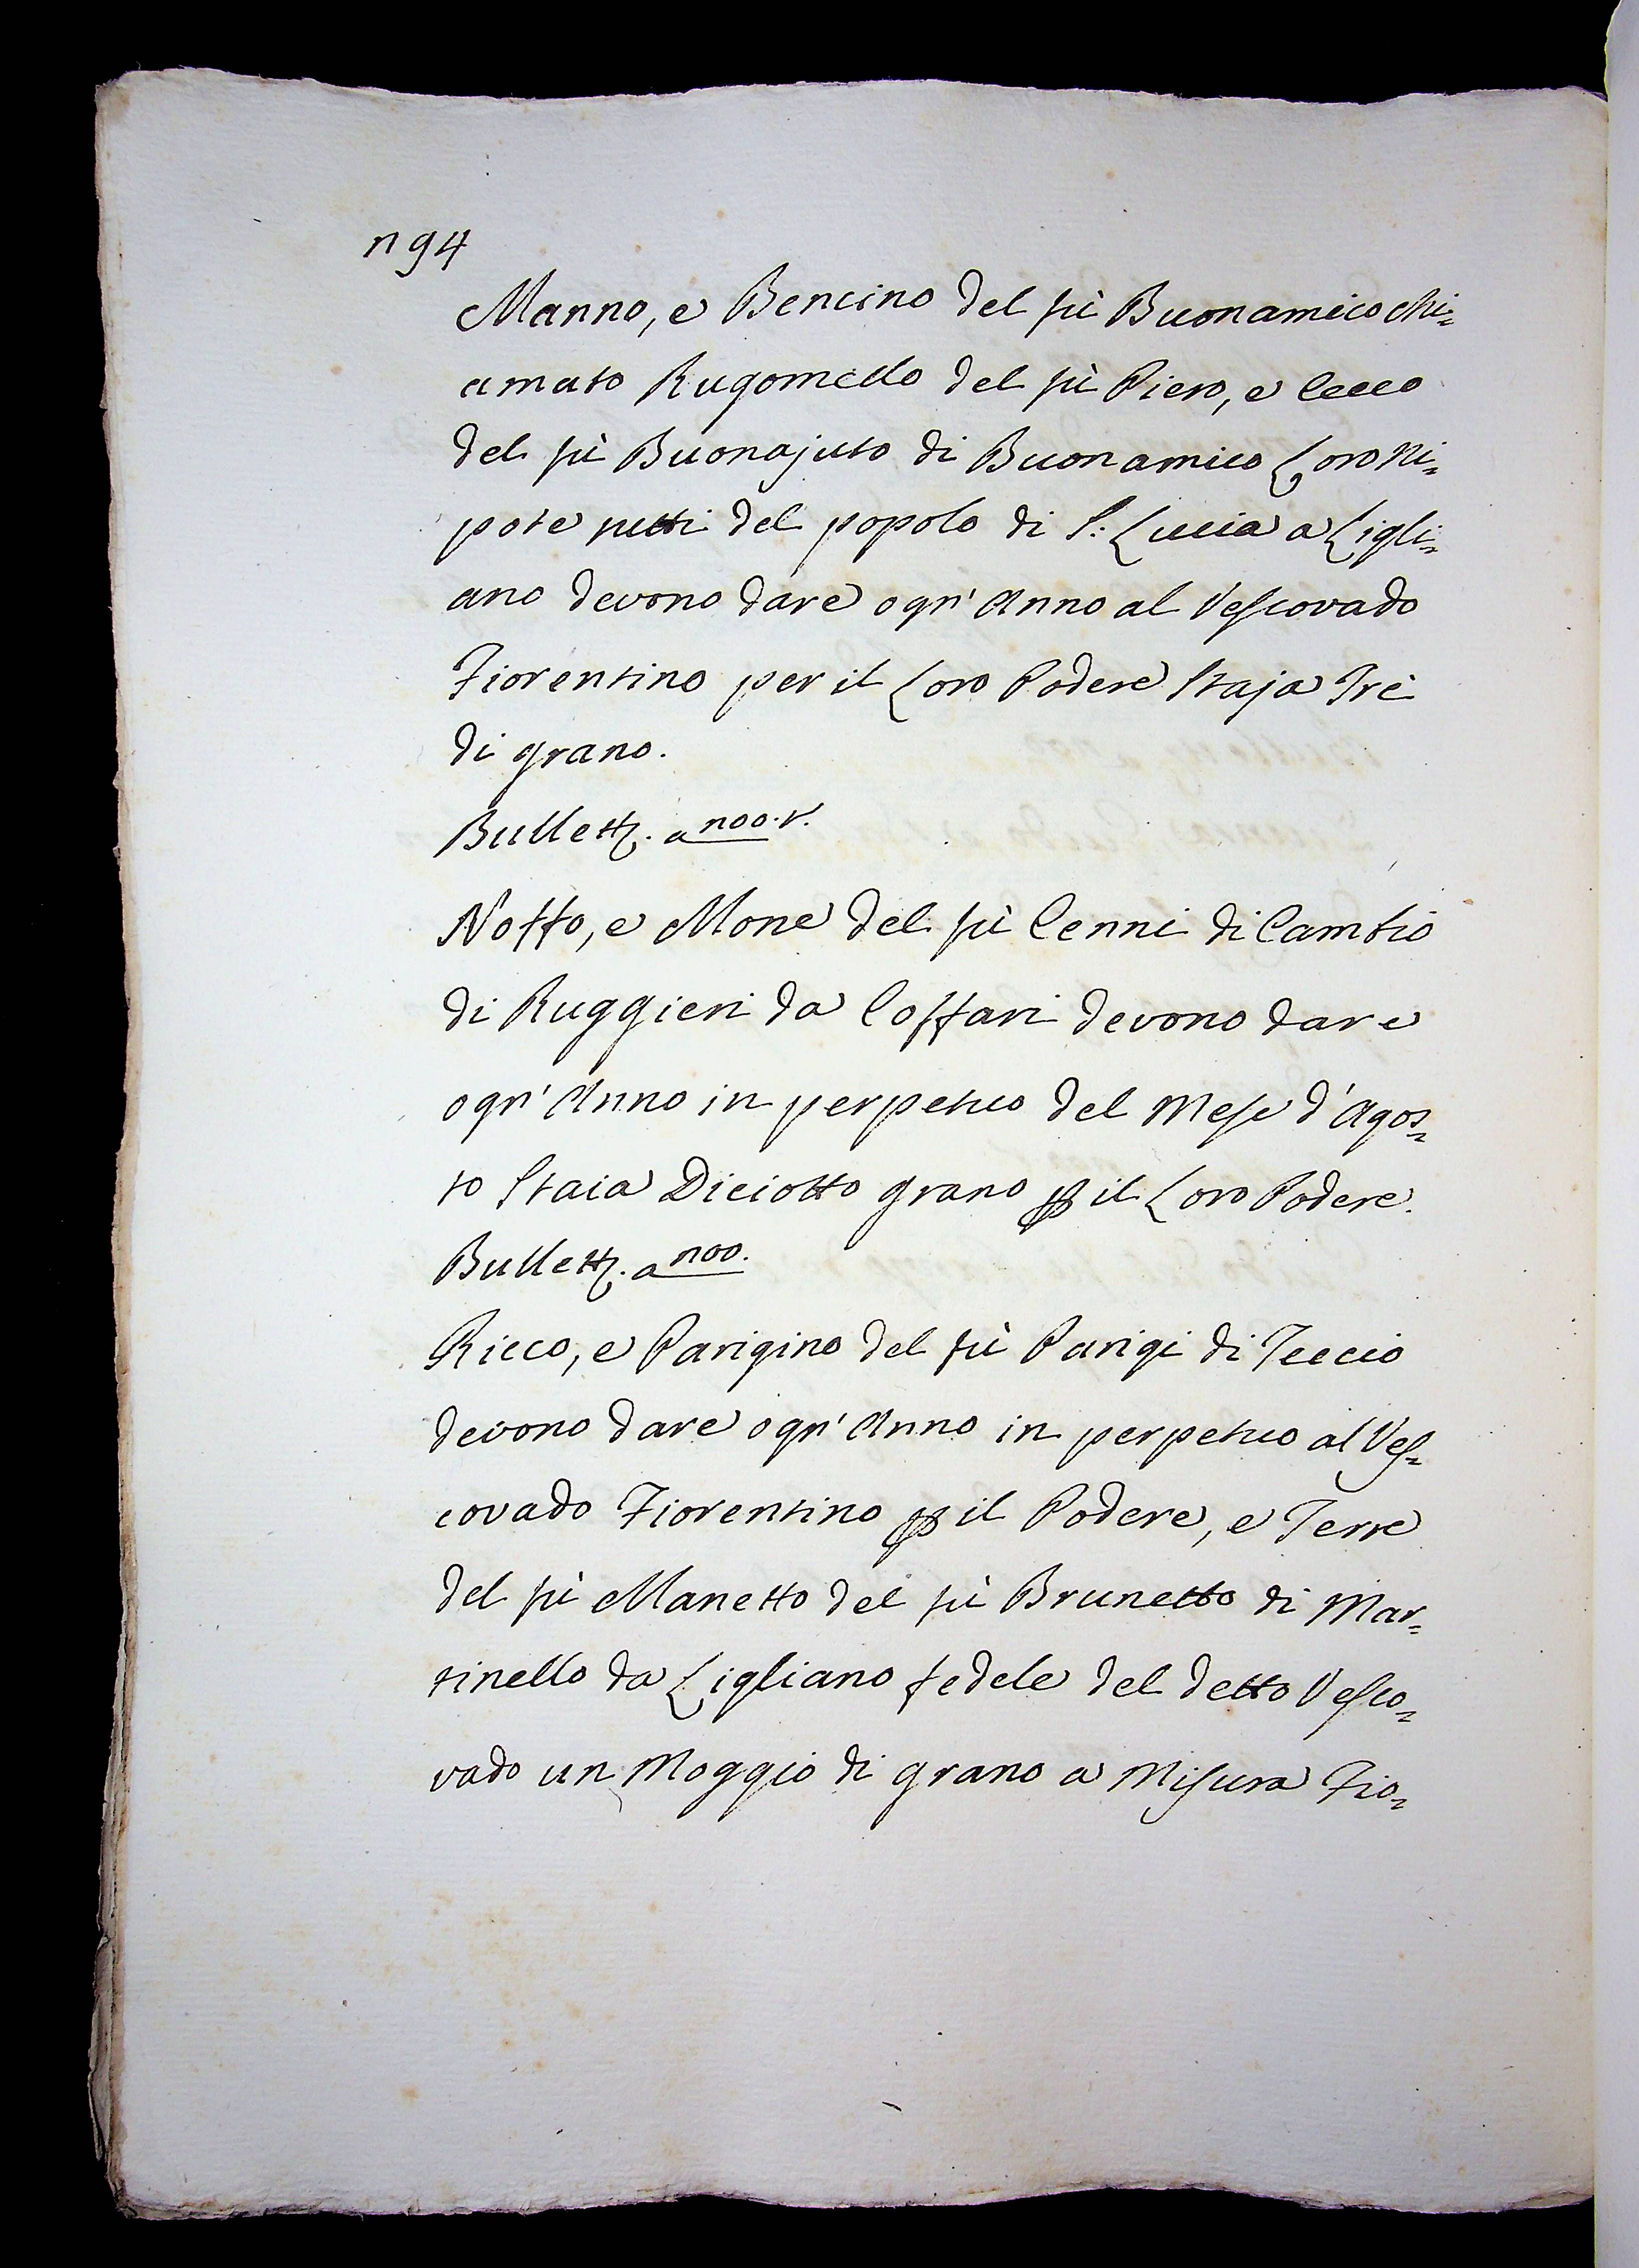 194
Manno, e Bencino del fù Buonamico chi=
amato Rugomello del fù Piero, e Cecco
del fù Buonajuto di Buonamico Loro Ni=
pote tutti del popolo di S: Lucia a Ligli=
ano devono dare ogn' Anno al Vescovado
Fiorentino per il Loro Podere Staja Trè
di grano.
Bullett. a 100. v.
Noffo, e Mone del fù Cenni di Cambio
di Ruggieri da Coffari devono dare
ogn' Anno in perpetuo del Mese d'Agos=
to Staia Diciotto grano p il Loro Podere.
Bullett. a 100.
Ricco, e Parigino del fù Parigi di Teccio
devono dare ogn' Anno in perpetuo al Ves=
covado Fiorentino p il Podere, e Terre
del fù Manetto del fù Brunetto di Mar=
tinello da Ligliano fedele del detto Vesco=
vado un Moggio di grano a Misura Fio=